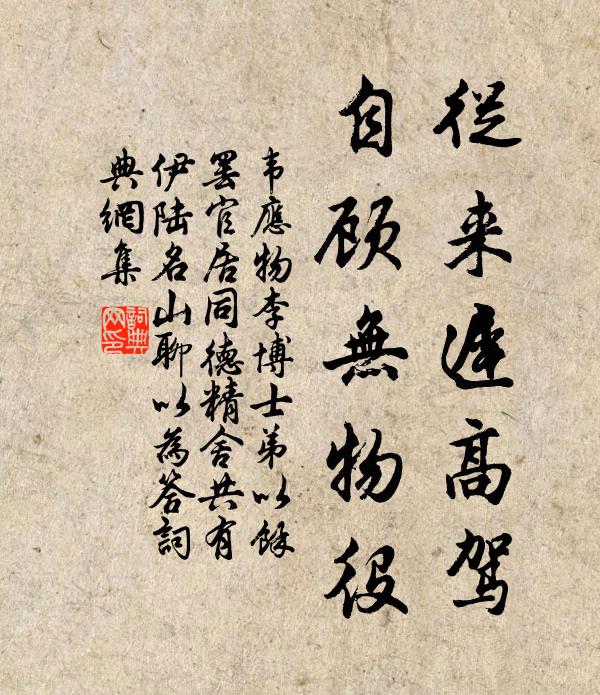 從来遲高駕
自顾無物役
韦應物李博士弟以餘
罢官居同德精舍共有
伊陸名山聊以為答詞
典網集
詞典
网印